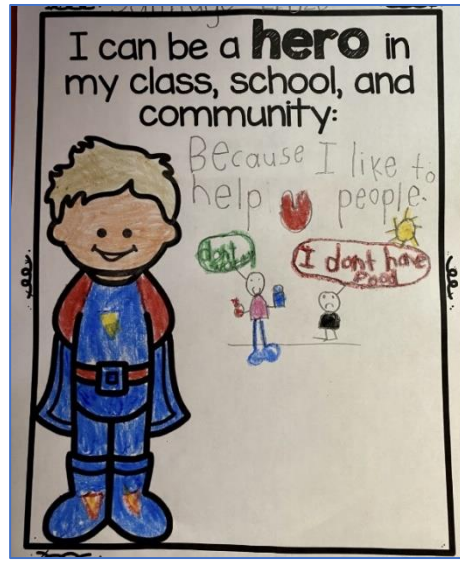 I can be a hero in
my class, school, and
community:
BEcause I like to
help people.
dont
I dont have
Food